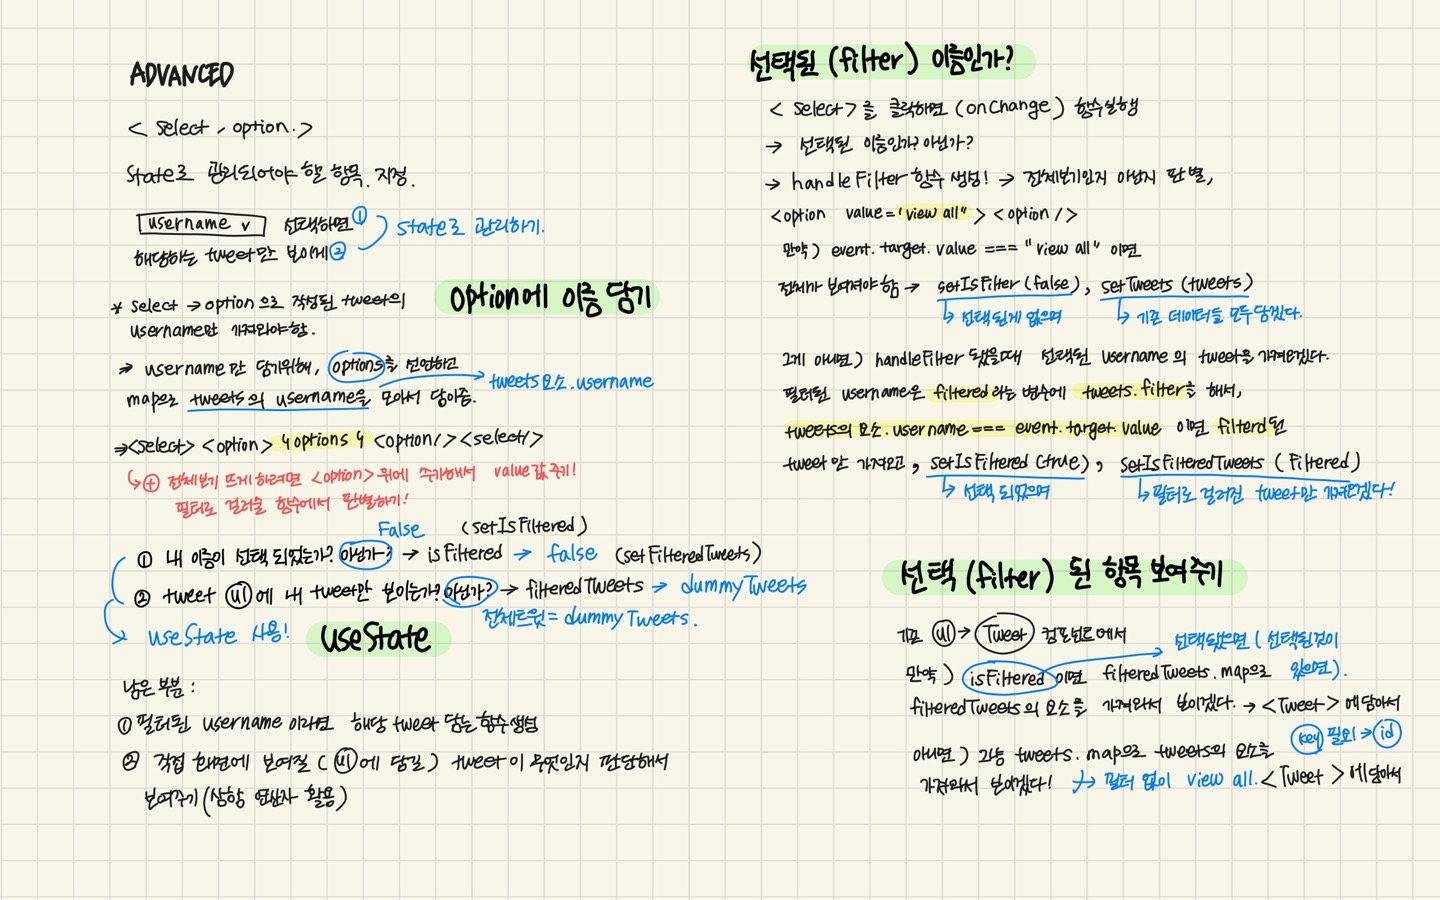 ADVANCED
< select, option.>
State로 관리되어야 할 항목 지정.
username v 선택하면①
해당하는 tweet만 보이게②
State로 관리하기.
option에 이름 담기
* select → option 으로 작성된 tweet의
username만 가져와야함.
→ username 만 담기위해, options를 선언하고
map으로 tweets의 username을 모아서 담아줌.
tweets요소.username
→<select> <option> {options} <option/><select/>
↳⊕ 전체보기 뜨게 하려면 <option> 위에 추가해서 value값주기!
필터로 걸러줄 함수에서 판별하기!
False (setIsFiltered)
① 내 이름이 선택 되었는가? 아닌가? → isFiltered → false (setFilteredTweets)
② tweet ul에 내 tweet만 보이는가? 아닌가? → filteredTweets → dummyTweets
전체트윗= dummyTweets.
useState 사용!
useState
남은 부분 :
① 필터된 username 이라면 해당 tweet 담는 함수생성
② 직접 화면에 보여질 ( ul에 담길 ) tweet이 무엇인지 판단해서
보여주기 (삼항 연산자 활용)
선택된 (filter) 이름인가?
< select>를 클릭하면 (onChange) 함수실행
→ 선택된 이름인가? 아닌가?
→ handleFilter 함수 생성! → 전체보기인지 아닌지 판별,
<option value="view all" > <option />
만약) event. target. value === "view all" 이면
전체가 보여져야함 → setIsFilter (false), setTweets (tweets)
↳ 선택된게 없으며
↳ 기존 데이터들 모두 담겠다.
그게 아니면) handleFilter 됐을때 선택된 username 의 tweet을 가져오겠다.
필터된 username은 filtered라는 변수에 tweets. filter를 해서,
tweets의 요소. username === event. target. value 이면 filterd된
tweet 만 가져오고, setIsFiltered (true), setIsFilteredTweets ( Filtered)
↳ 선택 되었으며
↳ 필터로 걸러진 tweet만 가져오겠다!
선택 (filter) 된 항목 보여주기
기존 ul → Tweet 컴포넌트에서
선택됐으면 ( 선택된것이
만약 ) isFiltered 이면 filteredTweets. map으로 있으면).
filteredTweets의 요소를 가져와서 보이겠다. → <Tweet> 에 담아서
key 필요 → id
아니면 ) 그냥 tweets. map으로 tweets의 요소를
가져와서 보이겠다! → 필터 없이 view all. <Tweet > 에 담아서